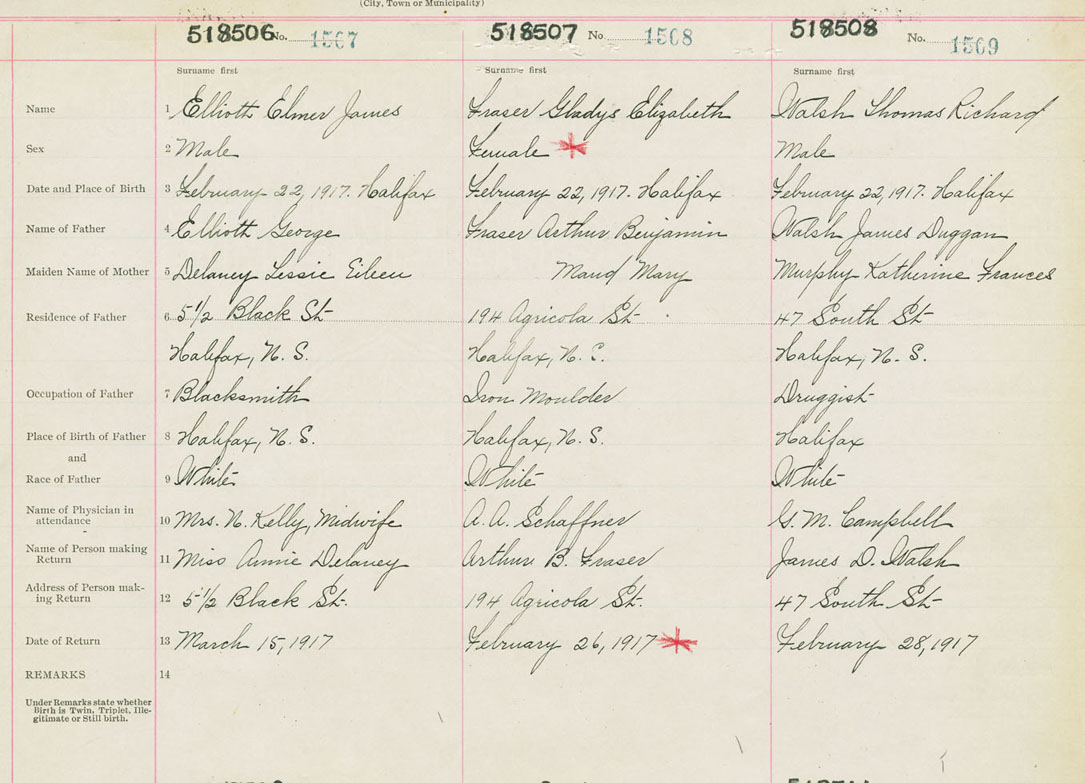 (City, Town or Municipality)
518506 No. 1507 518507 No. 1508 518508 No. 1509
Surname first Surname first Surname first
Name 1 Elliott Elmer James Fraser Gladys Elizabeth Walsh Thomas Richard
Sex 2 Male Female Male
Date and Place of Birth 3 February 22, 1917. Halifax February 22, 1917. Halifax February 22, 1917. Halifax
Name of Father 4 Elliott George Fraser Arthur Benjamin Walsh James Duggan
Maiden Name of Mother 5 Delaney Lessie Eileen Maud Mary Murphy Katherine Frances
Residence of Father 6 5 1/2 Black St 194 Agricola St 47 South St
Halifax, N. S. Halifax, N. S. Halifax, N. S.
Occupation of Father 7 Blacksmith Iron Moulder Druggist
Place of Birth of Father 8 Halifax, N. S. Halifax, N. S. Halifax
and
Race of Father 9 White White White
Name of Physician in
attendance 10 Mrs. N. Kelly, Midwife A. A. Schaffner G. M. Campbell
Name of Person making
Return 11 Miss Annie Delaney Arthur B. Fraser James D. Walsh
Address of Person mak-
ing Return 12 5 1/2 Black St. 194 Agricola St. 47 South St
Date of Return 13 March 15, 1917 February 26, 1917 February 28, 1917
REMARKS 14
Under Remarks state whether
Birth is Twin, Triplet, Ille-
gitimate or Still birth.